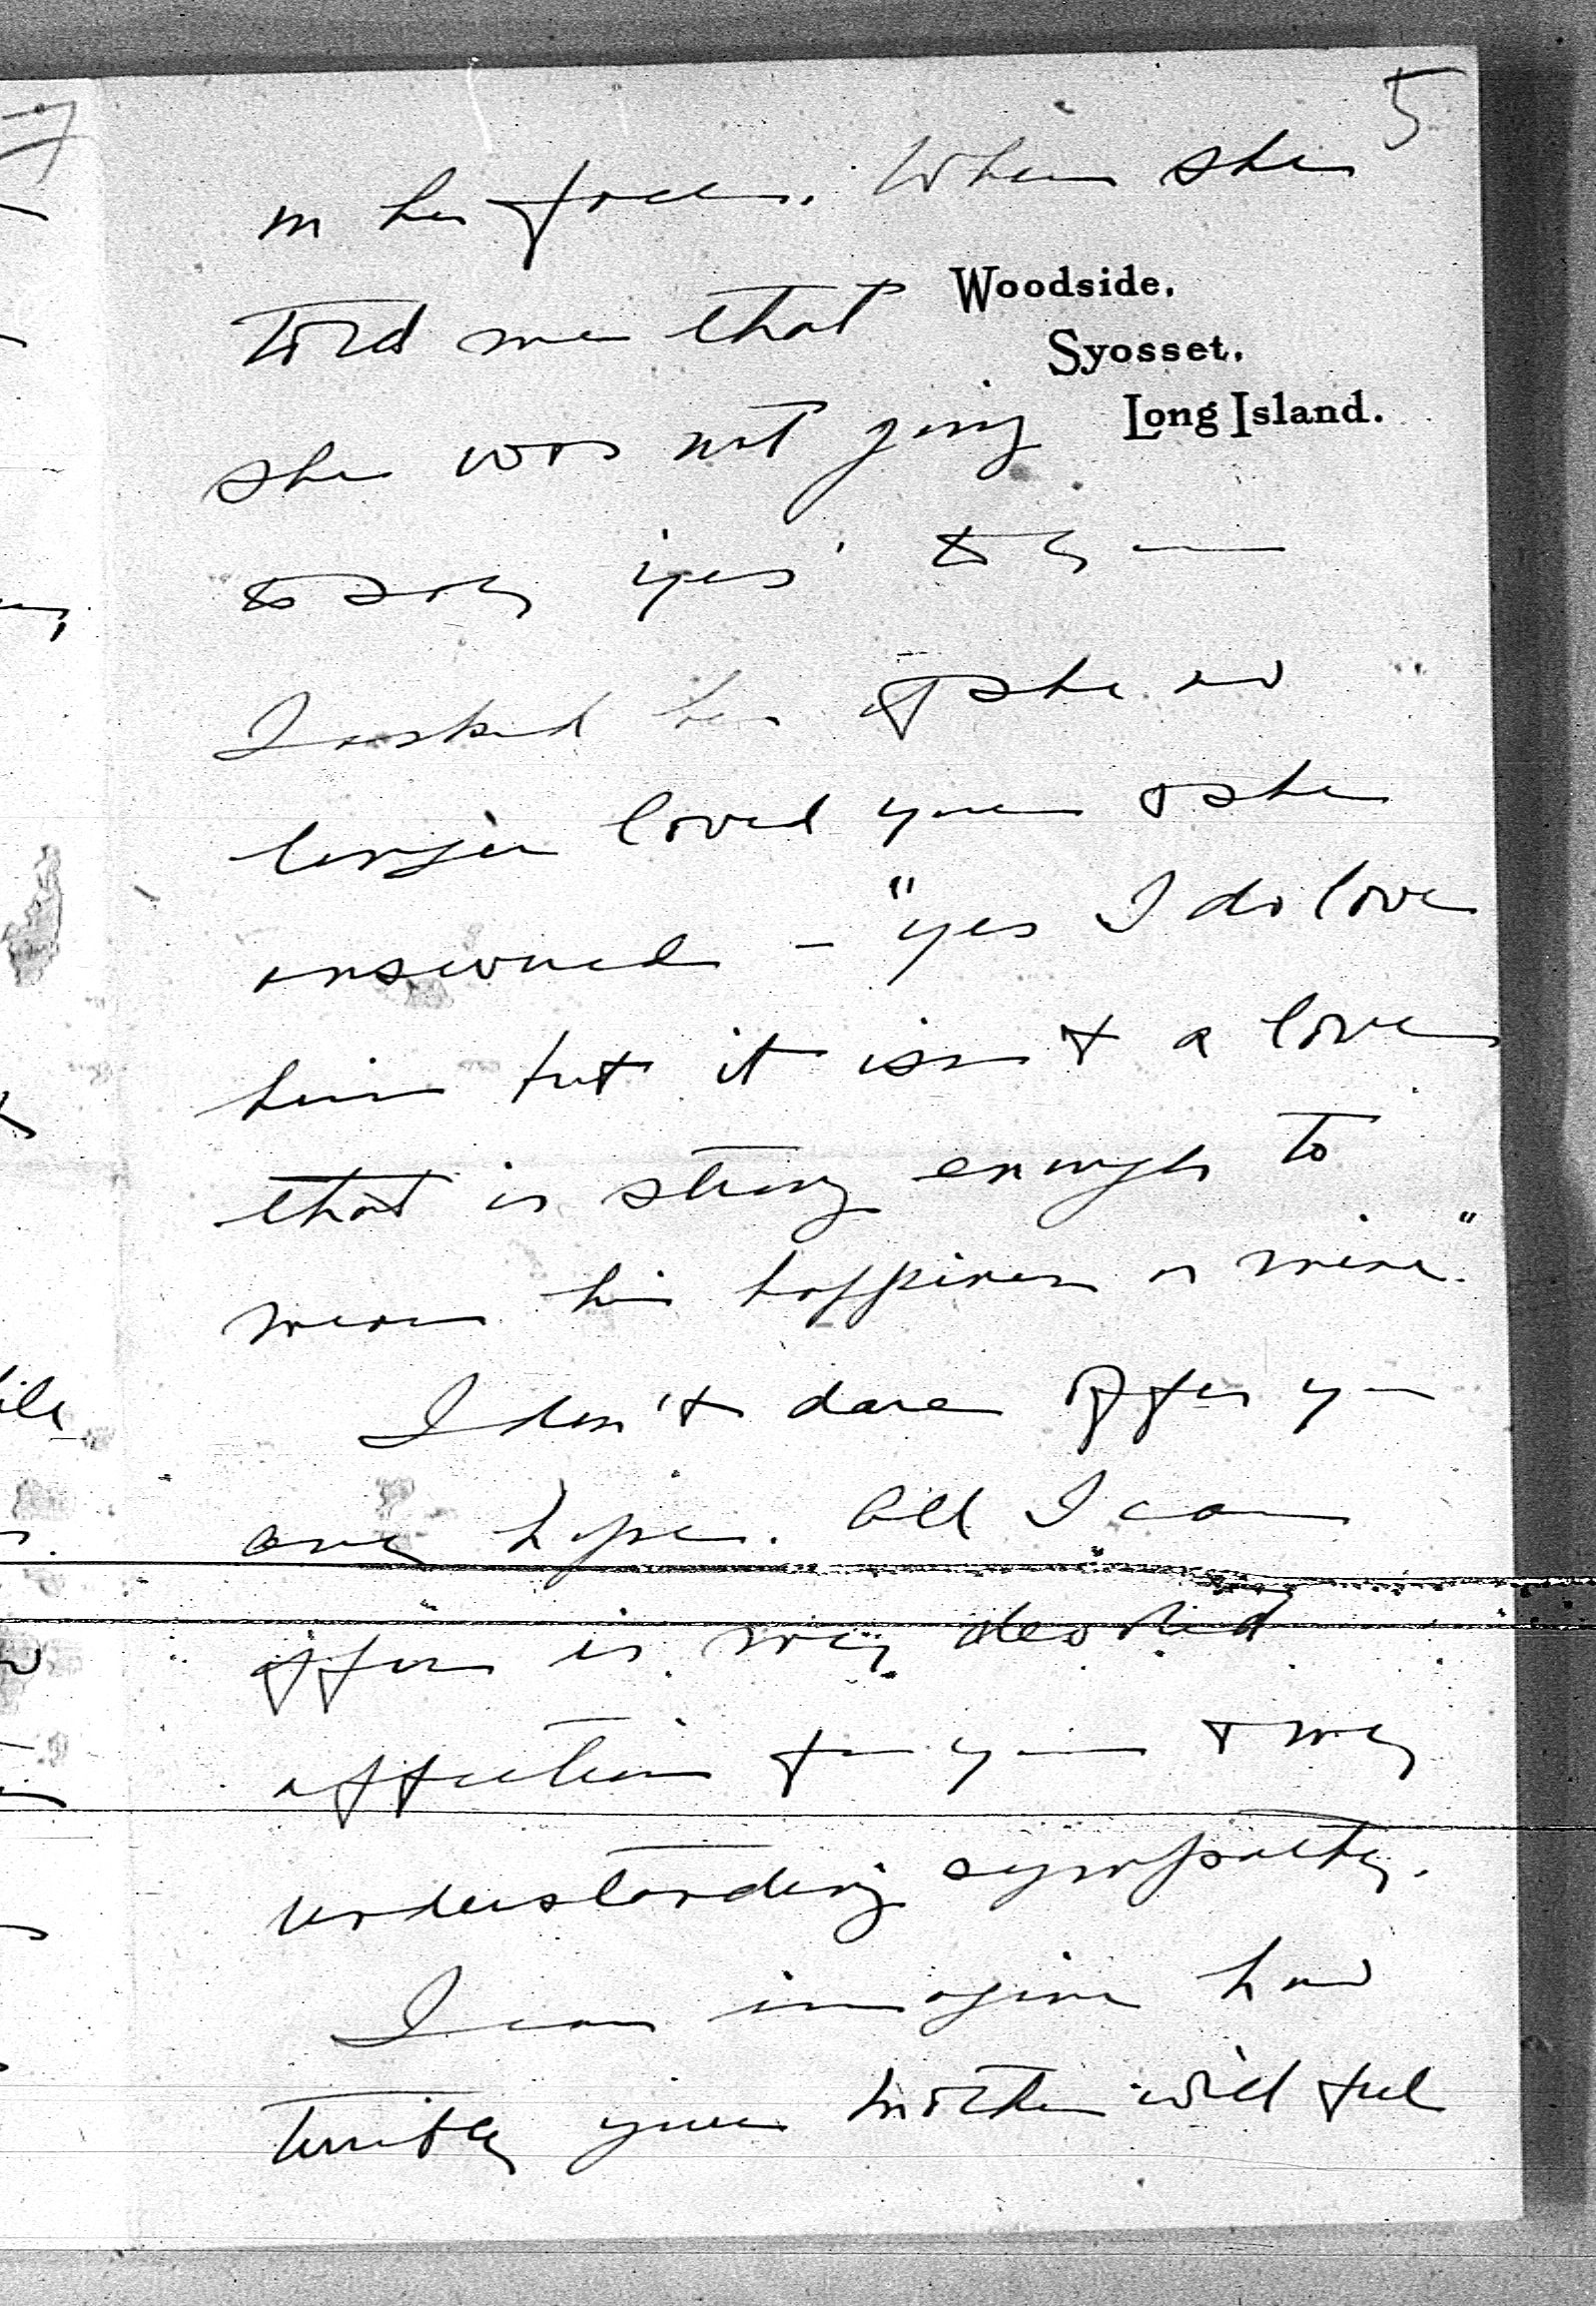 5
in her face. When she
Woodside,
Syosset,
Long Island.
told me that
she was not going
to say 'yes' to you
I asked her if she no
longer loved you & she
answered – "yes I do love
him but it isn't a love
that is strong enough to
mean his happiness or mine."
I don't dare offer you
any hope. All I can
offer is my devoted
affection for you & my
understanding sympathy.
I can imagine how
terribly your mother will feel